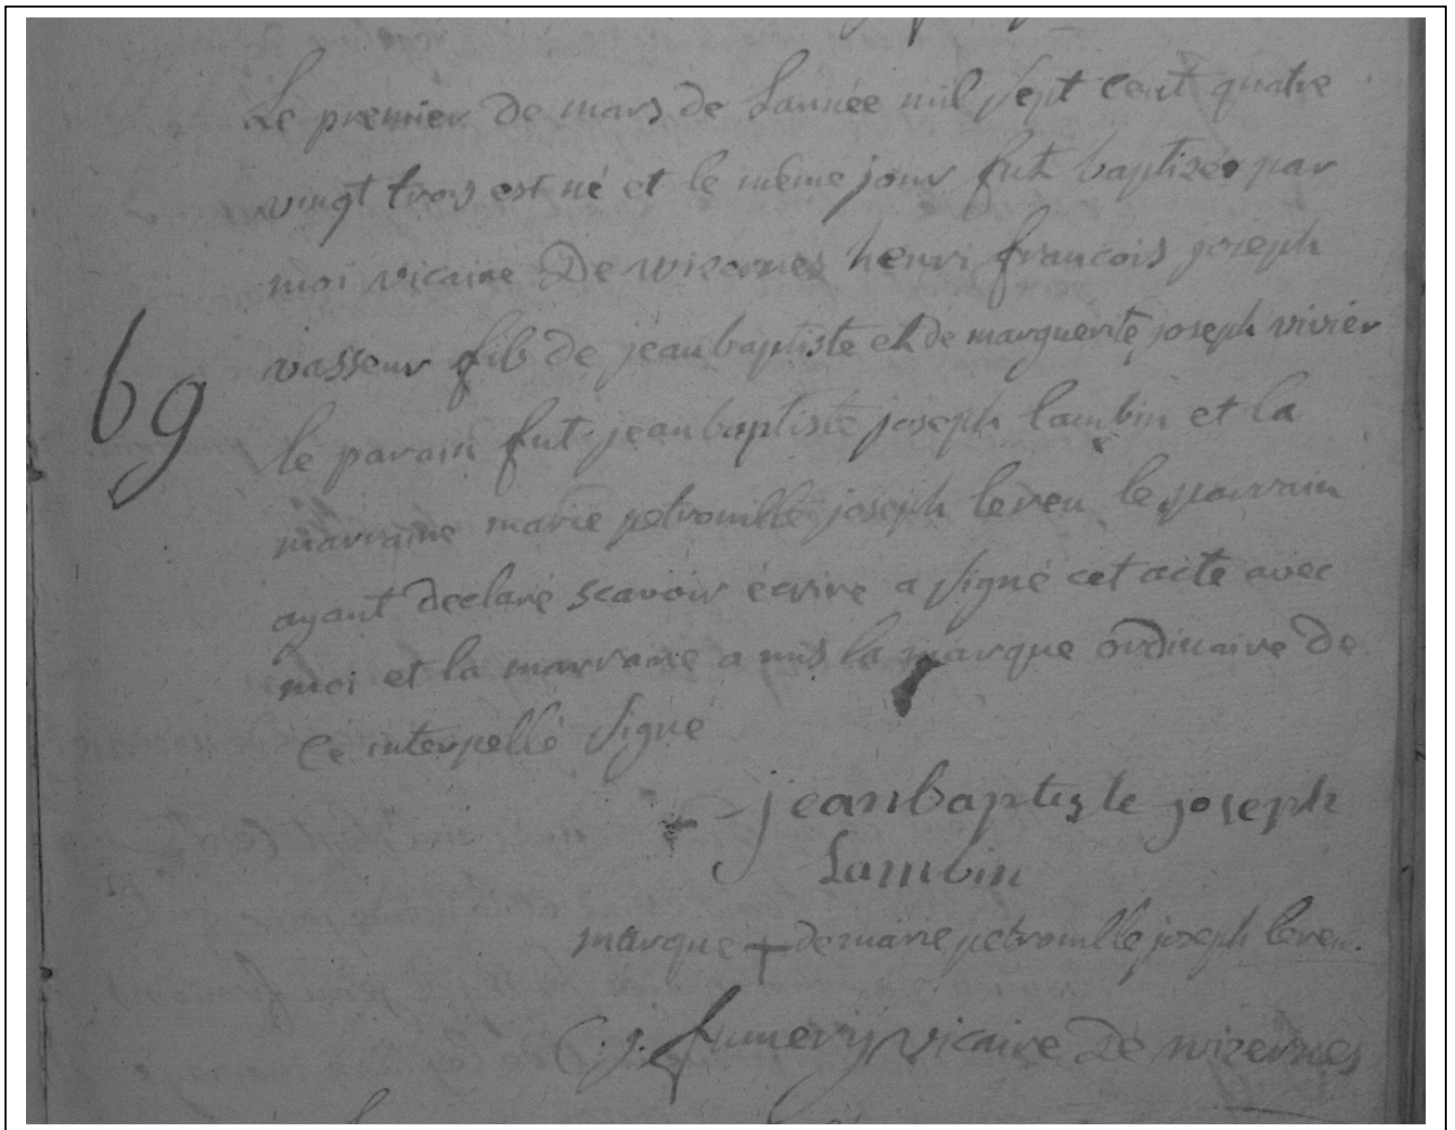 Le premier de mars de Lannée mil sept cent quatre
vingt trois est né et le même jour fut baptizé par
moi vicaire De wizernes henri francois joseph
vasseur fils de jeanbaptiste et de marguerite joseph vivier
bg
le parain fut jeanbaptiste joseph lambin et la
marraine marie petronille joseph leveu le parrain
ayant declaré scavoir écrire a signé cet acte avec
moi et la marraine a mis la marque ordinaire de
ce interpellé signé
jeanbaptiste joseph
Lambin
marque + de marie petronille joseph leveu.
vicaire De wizernes